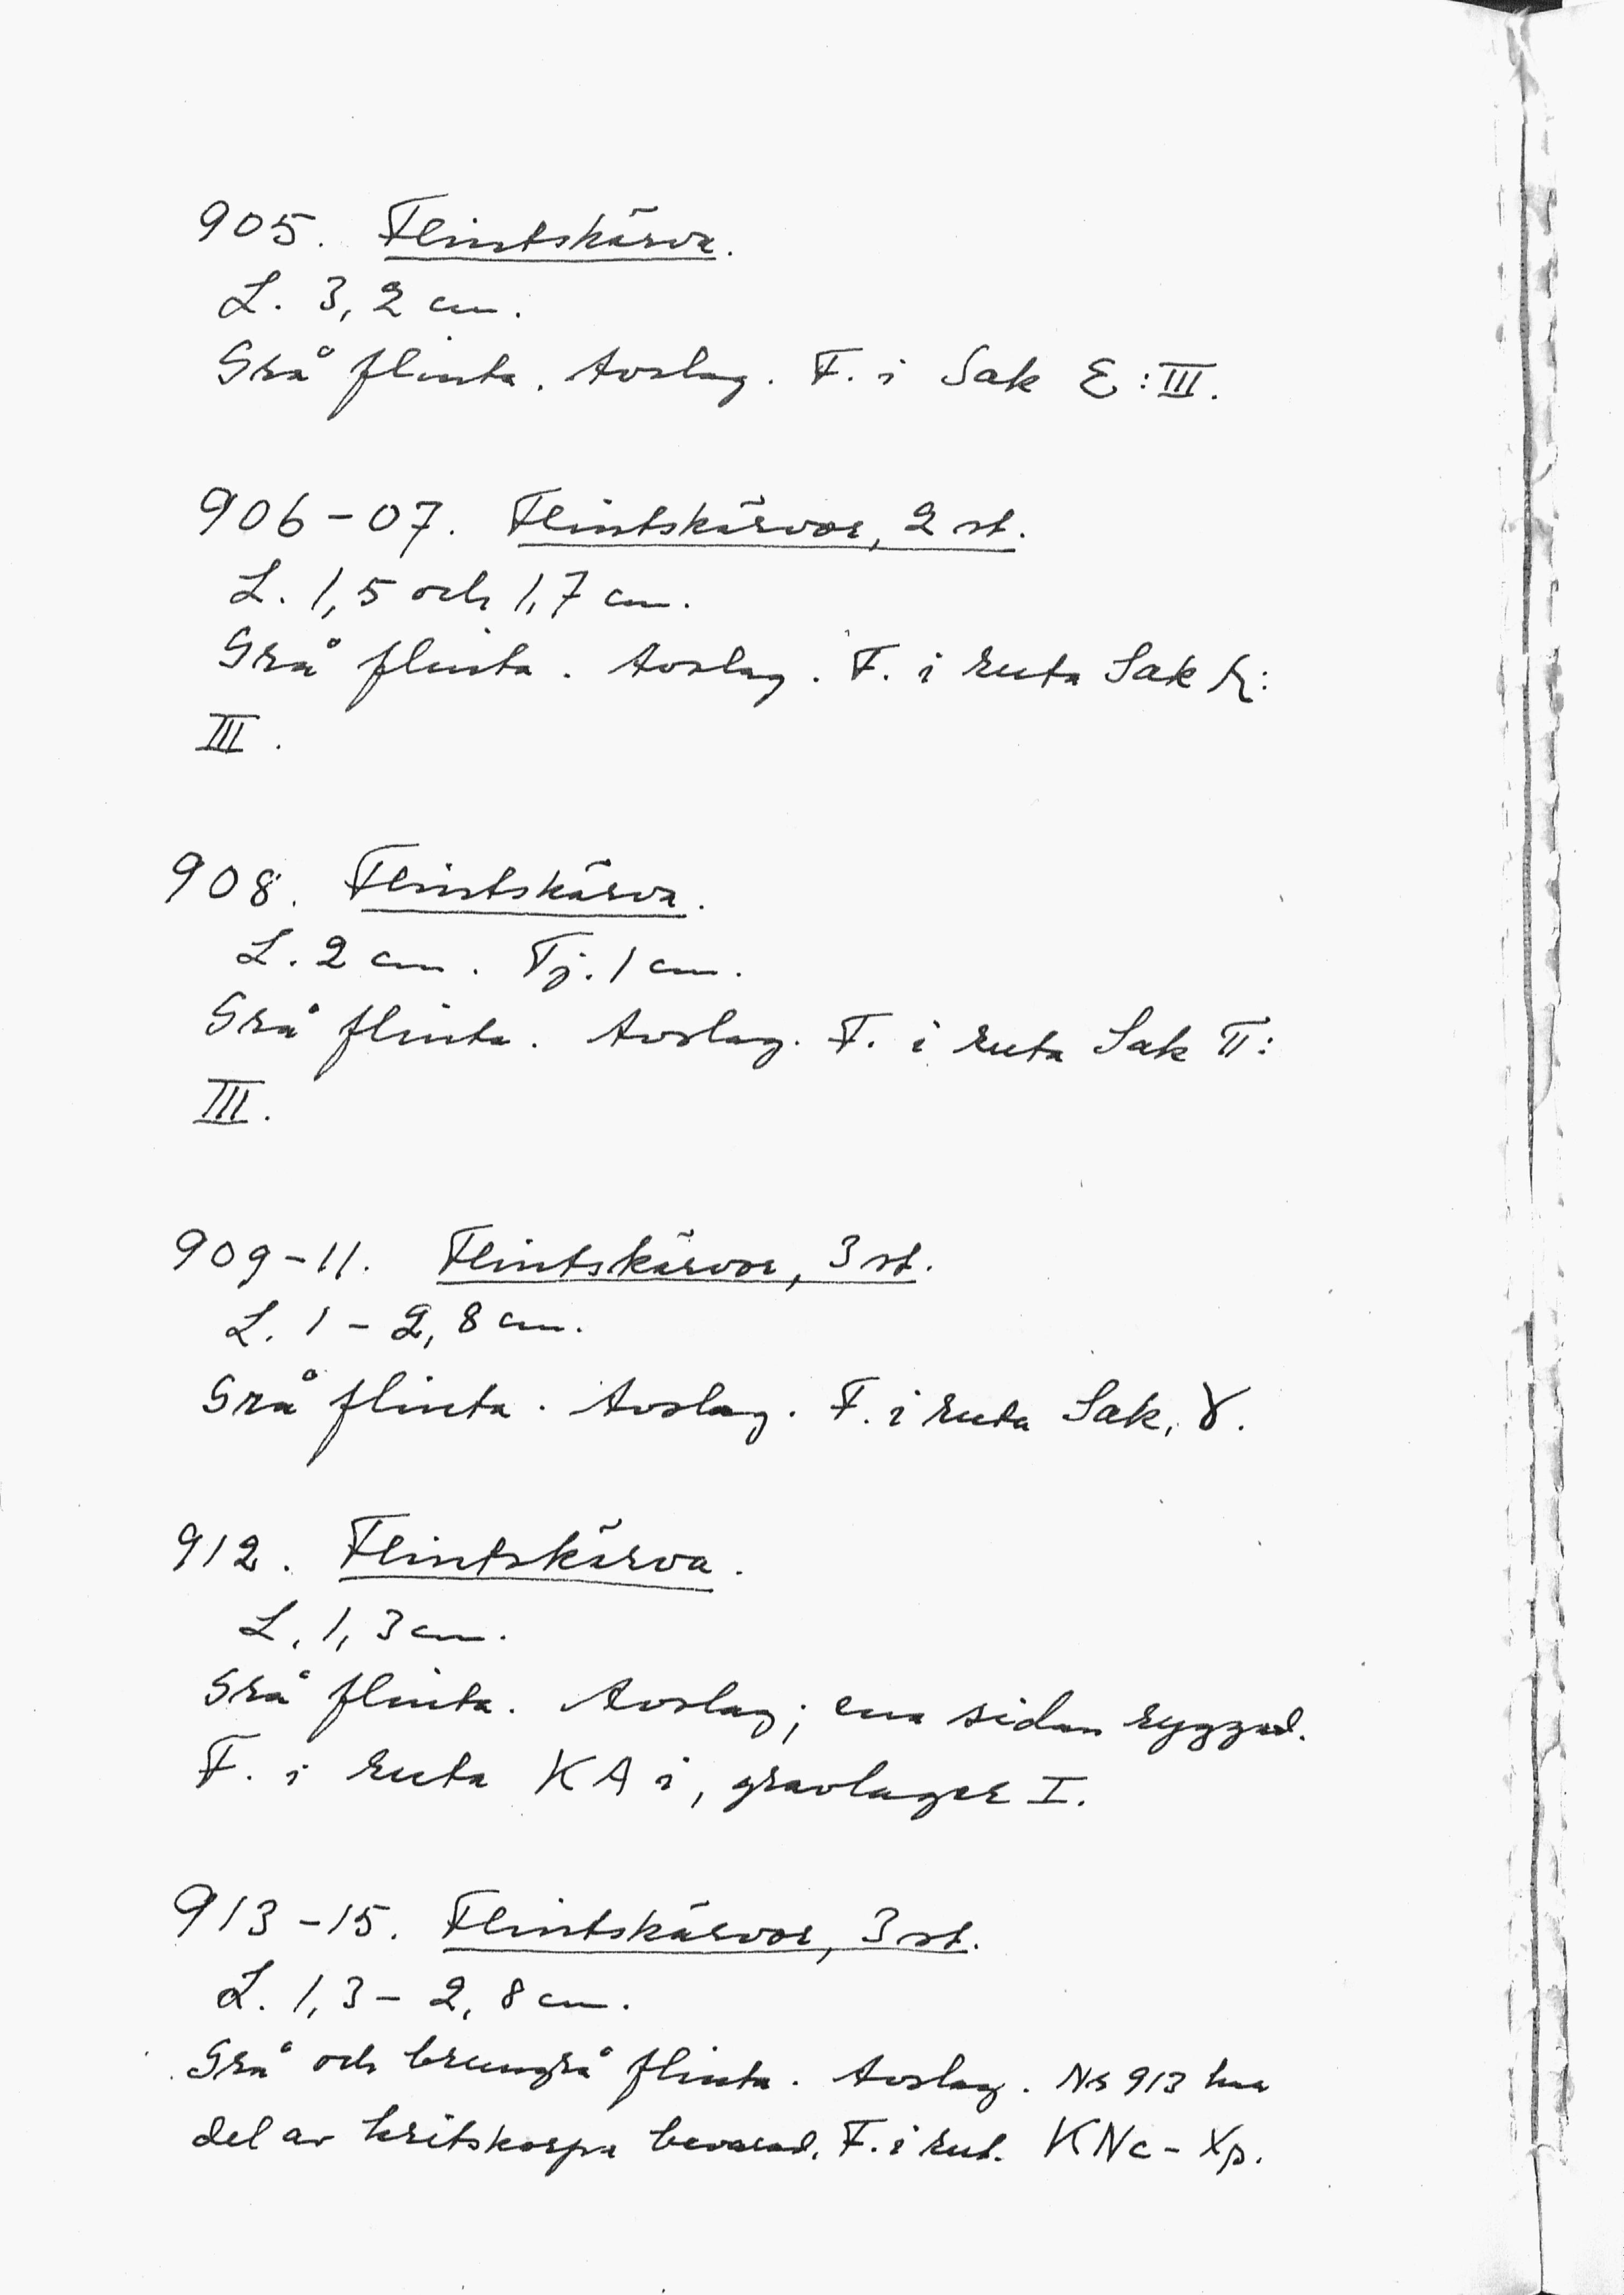 905. Flintskärva.
L. 3,2 cm.
Grå flinta. Avslag. F. i Sak E:III.
906-07. Flintskärvor, 2 st.
L. 1,5 och 1,7 cm.
Grå flinta. Avslag. F. i ruta Sak
III.
908. Flintskärva.
L. 2 cm. Tj. 1 cm.
Grå flinta. Avslag. F. i ruta Sak π:
III.
909-11. Flintskärvor, 3 st.
L. 1 - 2,8 cm.
Grå flinta. Avslag. F. i ruta Sak, γ.
912. Flintskärva.
L. 1,3 cm.
Grå flinta. Avslag; ena sidan ryggad.
F. i ruta KA i, gravlager I.
913-15. Flintskärvor, 3 st.
L. 1,3 - 2,8 cm.
Grå och brungrå flinta. Avslag. Nr 913 har
del av kritskorpa bevarad. F. i rut. KNc -